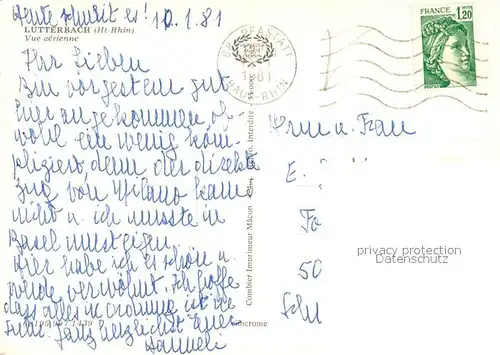 Heute schneit es! 10.1.81
LUTTERBACH (Ht-Rhin)
Vue aérienne
Ihr Lieben
Bin vorgestern gut
hier angekommen ob-
wohl ein wenig kom-
pliziert denn der direkte
Zug von Milano kam
nicht u. ich musste in
Basel umsteigen.
Hier habe ich es schön u.
werde verwöhnt. Ich hoffe
dass alles in Ordnung ist
Ganz herzlichst Euer
Hanneli
Combier Imprimeur Mâcon
Interdite
1981
HAUT-RHIN
FRANCE
1,20
POSTES
Herrn u. Frau
E.
Fo
50
Schw
privacy protection
Datenschutz